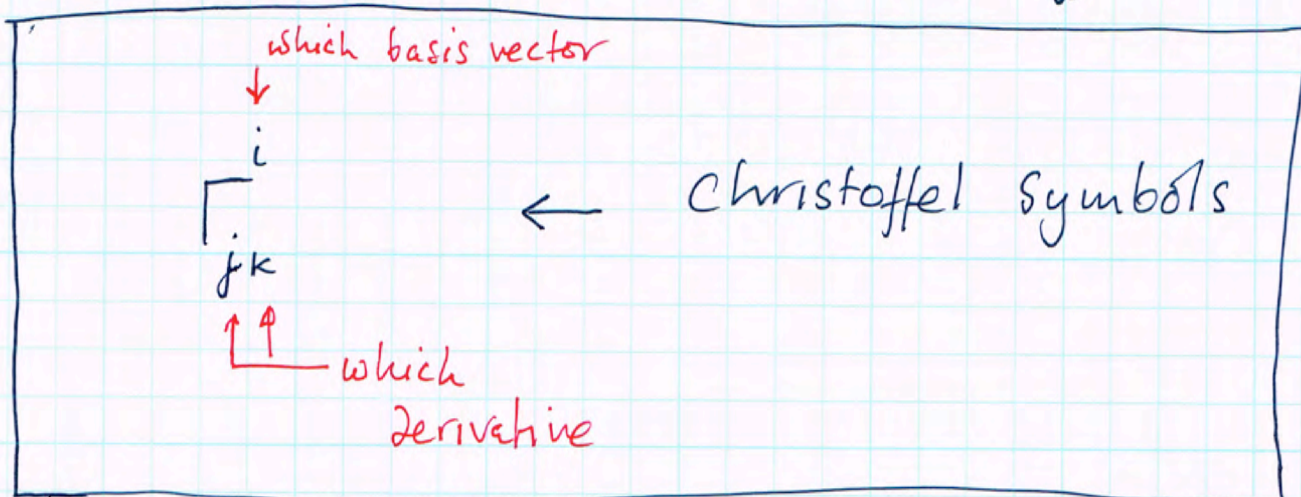 which basis vector
↓
i
Γ ← Christoffel Symbols
jk
↑ ↑
which
derivative